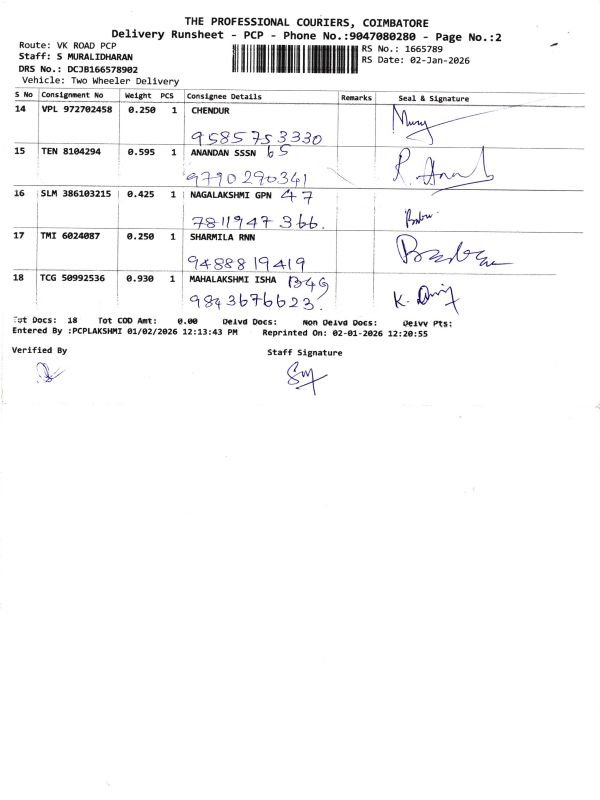 THE PROFESSIONAL COURIERS, COIMBATORE
Delivery Runsheet - PCP - Phone No.:9047080280 - Page No.:2
Route: VK ROAD PCP RS No.: 1665789
Staff: S MURALIDHARAN RS Date: 02-Jan-2026
DRS No.: DCJB166578902
Vehicle: Two Wheeler Delivery
S No Consignment No Weight PCS Consignee Details Remarks Seal & Signature
14 VPL 972702458 0.250 1 CHENDUR
9585753330
15 TEN 8104294 0.595 1 ANANDAN SSSN 65
9790290341
16 SLM 386103215 0.425 1 NAGALAKSHMI GPN 47
7811947366.
17 TMI 6024087 0.250 1 SHARMILA RNN
9488819419
18 TCG 50992536 0.930 1 MAHALAKSHMI ISHA B49
9843676623.
Tot Docs: 18 Tot COD Amt: 0.00 Delvd Docs: Non Delvd Docs: Delvv Pts:
Entered By :PCPLAKSHMI 01/02/2026 12:13:43 PM Reprinted On: 02-01-2026 12:20:55
Verified By Staff Signature